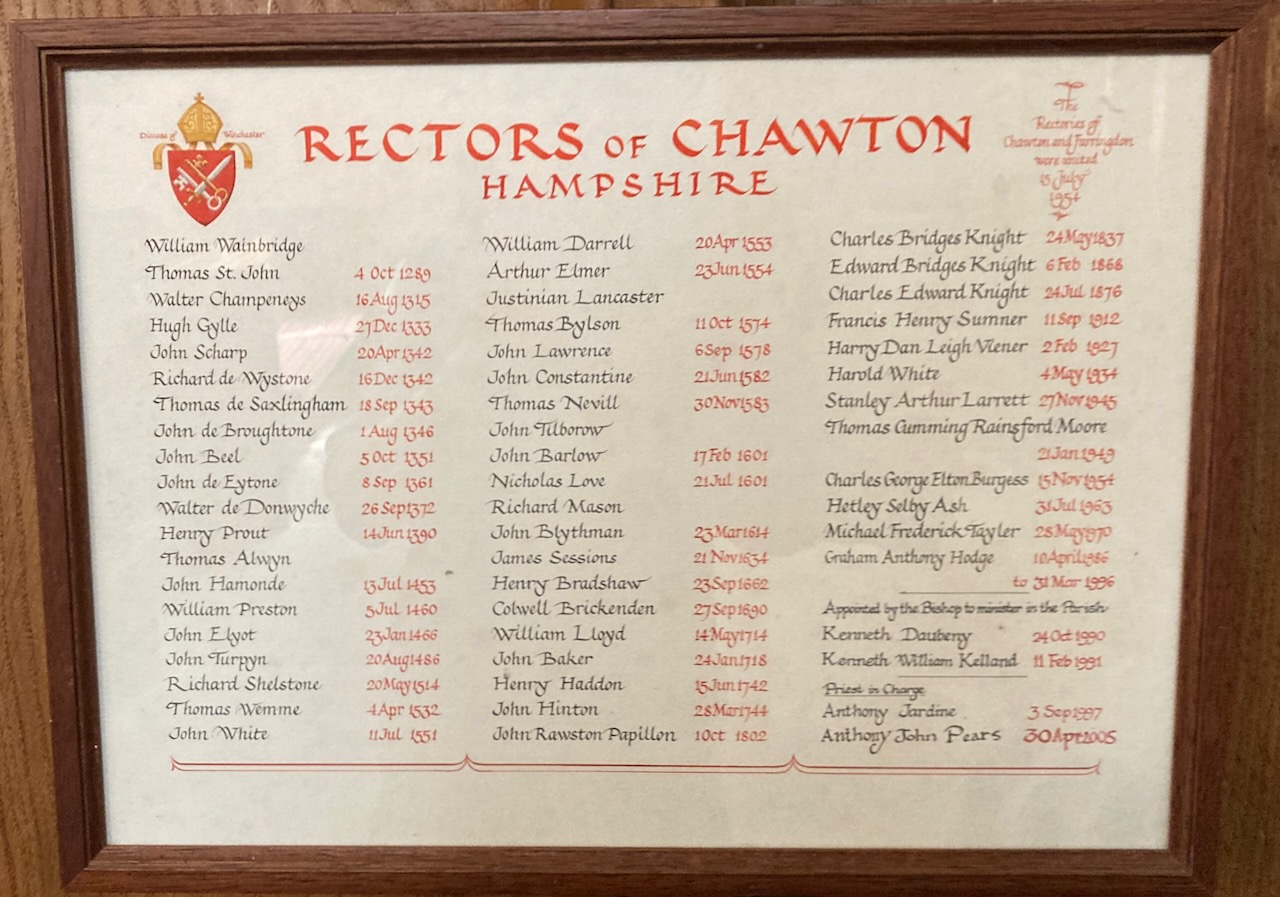 Diocese of Winchester
RECTORS OF CHAWTON
HAMPSHIRE
The
Rectories of
Chawton and Farringdon
were united
15 July
1954
William Wainbridge
Thomas St. John 4 Oct 1289
Walter Champeneys 16 Aug 1315
Hugh Gylle 27 Dec 1333
John Scharp 20 Apr 1342
Richard de Wystone 16 Dec 1342
Thomas de Saxlingham 18 Sep 1343
John de Broughtone 1 Aug 1346
John Beel 5 Oct 1351
John de Eytone 8 Sep 1361
Walter de Donwyche 26 Sep 1372
Henry Prout 14 Jun 1390
Thomas Alwyn
John Hamonde 13 Jul 1453
William Preston 5 Jul 1460
John Elyot 23 Jan 1466
John Turpyn 20 Aug 1486
Richard Shelstone 20 May 1514
Thomas Wemme 4 Apr 1532
John White 11 Jul 1551
William Darrell 20 Apr 1553
Arthur Elmer 23 Jun 1554
Justinian Lancaster
Thomas Bylson 11 Oct 1574
John Lawrence 6 Sep 1578
John Constantine 21 Jun 1582
Thomas Nevill 30 Nov 1583
John Tilborow
John Barlow 17 Feb 1601
Nicholas Love 21 Jul 1601
Richard Mason
John Blythman 23 Mar 1614
James Sessions 21 Nov 1634
Henry Bradshaw 23 Sep 1662
Colwell Brickenden 27 Sep 1690
William Lloyd 14 May 1714
John Baker 24 Jan 1718
Henry Haddon 15 Jun 1742
John Hinton 28 Mar 1744
John Rawston Papillon 1 Oct 1802
Charles Bridges Knight 24 May 1837
Edward Bridges Knight 6 Feb 1868
Charles Edward Knight 24 Jul 1876
Francis Henry Sumner 11 Sep 1912
Harry Dan Leigh Viener 2 Feb 1927
Harold White 4 May 1934
Stanley Arthur Larrett 27 Nov 1945
Thomas Cumming Rainsford Moore
21 Jan 1949
Charles George Elton Burgess 15 Nov 1954
Hetley Selby Ash 31 Jul 1963
Michael Frederick Tayler 28 May 1970
Graham Anthony Hodge 10 April 1986
to 31 Mar 1996
Appointed by the Bishop to minister in the Parish
Kenneth Daubeny 24 Oct 1990
Kenneth William Kelland 11 Feb 1991
Priest in Charge
Anthony Jardine 3 Sep 1997
Anthony John Pears 30 Apr 2005